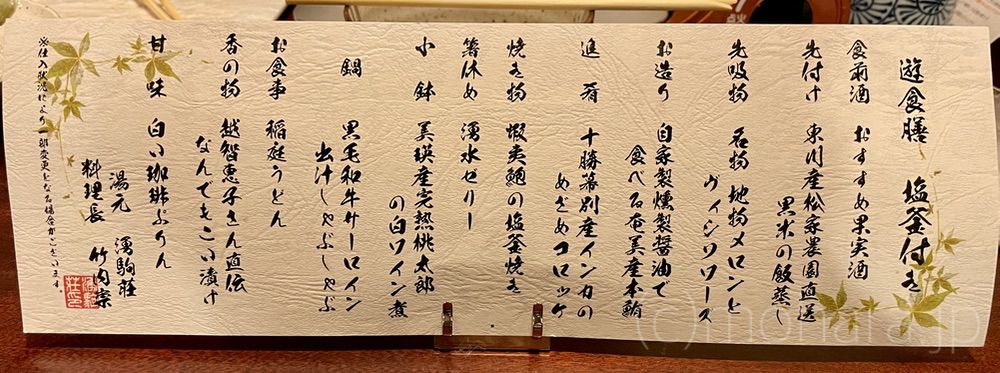 遊食膳　塩釜付き
食前酒　おすすめ果実酒
先付け　東川産松家農園直送
黒米の飯蒸し
先吸物　名物 地物メロンと
ヴィシソワーズ
お造り　自家製燻製醤油で
食べる奄美産本鮪
進肴　十勝幕別産インカの
めざめコロッケ
焼き物　蝦夷鮑の塩釜焼き
箸休め　湧水ゼリー
小鉢　美瑛産完熟桃太郎
の白ワイン煮
鍋　黒毛和牛サーロイン
出汁しゃぶしゃぶ
お食事　稲庭うどん
香の物　越智恵子さん直伝
なんでもこい漬け
甘味　白い珈琲ぷりん
湯元　湧駒荘
料理長　竹内崇
※仕入状況により一部変更となる場合がございます。
(c) nohara.jp